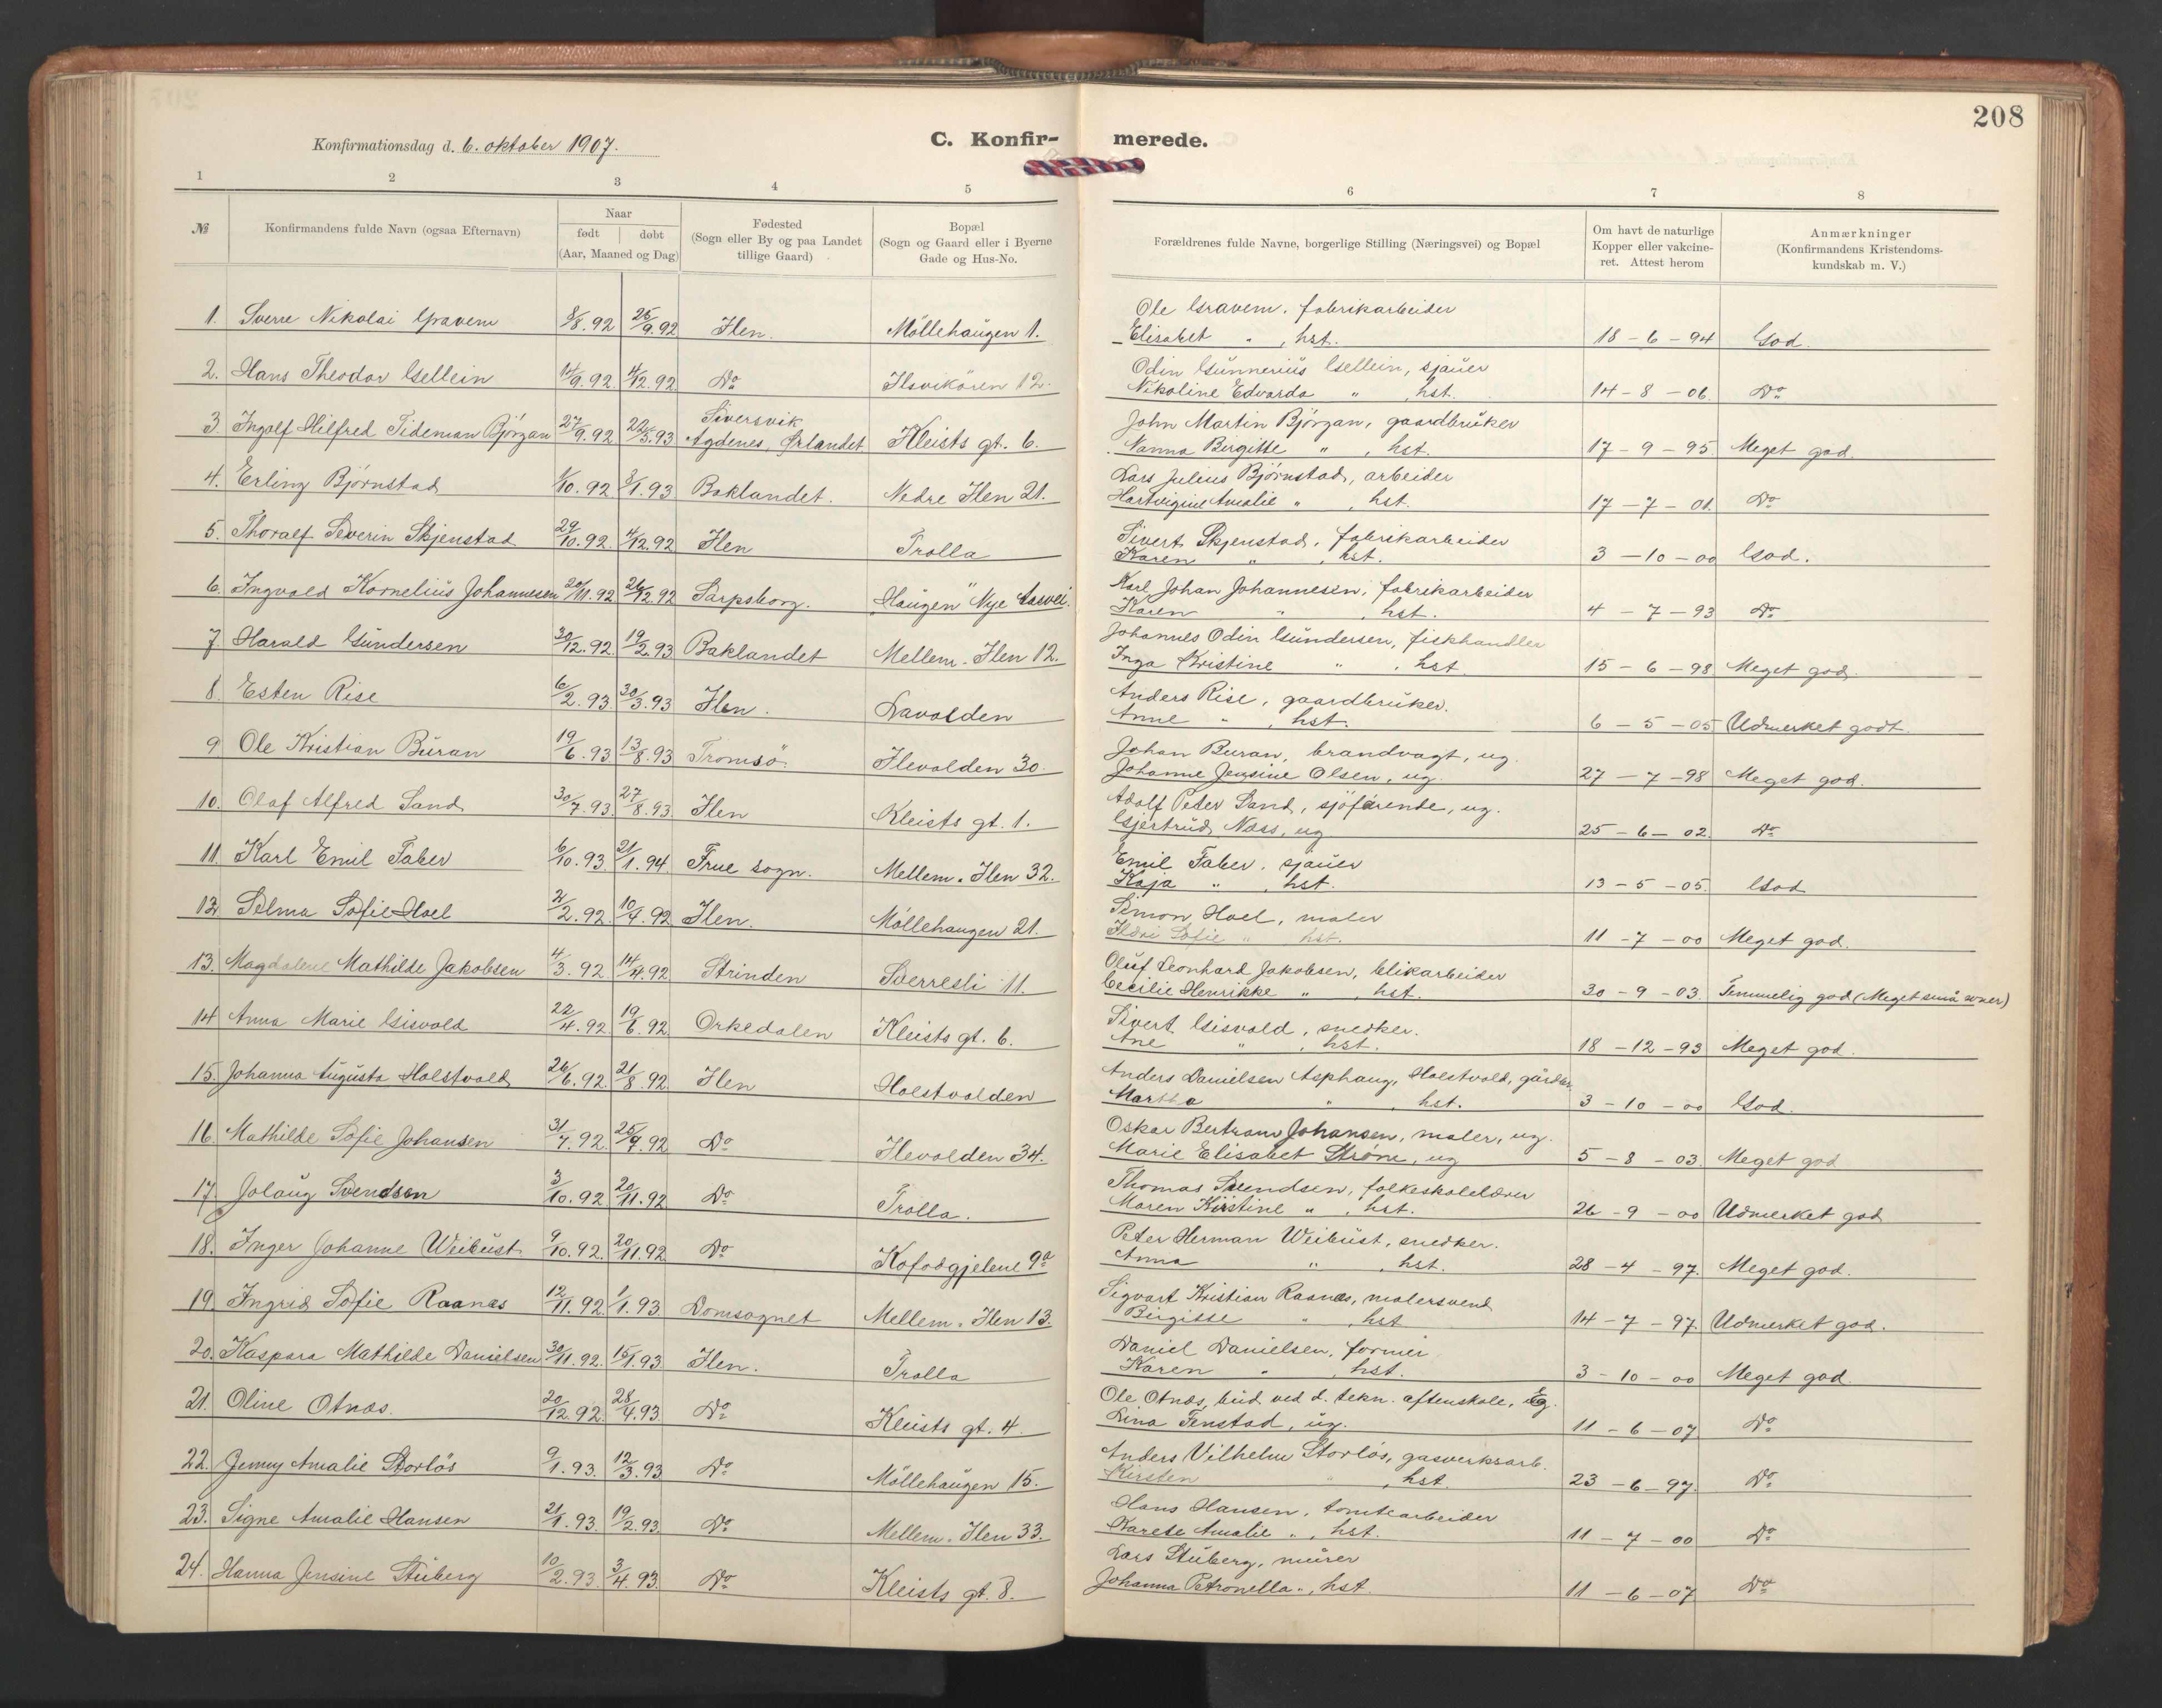 208
Konfirmationsdag d. 6. oktober 1907.
C. Konfir- merede.
1 2 3 4 5 6 7 8
№ Konfirmandens fulde Navn (ogsaa Efternavn) Naar født døbt (Aar, Maaned og Dag) Fødested (Sogn eller By og paa Landet tillige Gaard) Bopæl (Sogn og Gaard eller i Byerne Gade og Hus-No. Forældrenes fulde Navne, borgerlige Stilling (Næringsvei) og Bopæl Om havt de naturlige Kopper eller vakcineret. Attest herom Anmærkninger (Konfirmandens Kristendomskundskab m. V.)
1. Sverre Nikolai Gravem 8/8.92 25/9.92 Ilen. Möllehaugen 1. Ole Gravem, fabrikarbeider
Elisabet " , hst. 18-6-94 God.
2. Hans Theodor Gellein 14/9.92 4/12.92 Do Ilsvikören 12. Odin Gunnerius Gellein, sjauer
Nikoline Edvarda " , hst. 14-8-06. Do
3. Ingolf Hilfred Tideman Bjørgan 27/9.92 22/5.93 Siversvik Agdenes, Ørlandet Kleists gt. 6. John Martin Bjørgan, gaardbruker
Nanna Birgitte " , hst. 17-9-95. Meget god.
4. Erling Bjørnstad 1/10.92 8/1.93 Baklandet. Nedre Ilen 21. Lars Julius Bjørnstad, arbeider
Hartvigine Amalie " , hst. 17-7-01. Do
5. Thoralf Severin Skjenstad 29/10.92. 4/12.92 Ilen Trolla Sivert Skjenstad, fabrikarbeider
Karen " , hst. 3-10-00 God.
6. Ingvald Kornelius Johannesen 20/11.92 26/12.92 Sarpsborg. "Haugen" Nye Aasvei. Karl Johan Johannesen, fabrikarbeider
Karen " , hst. 4-7-93 Do
7. Harald Gundersen 30/12.92. 19/2.93 Baklandet Mellem-Ilen 12. Johannes Odin Gundersen, fiskhandler
Inga Kristine " , hst. 15-6-98 Meget god.
8. Esten Rise 6/2.93 30/3.93 Ilen. Lavolden Anders Rise, gaardbruker.
Anne " , hst. 6-5-05 Udmerket godt.
9 Ole Kristian Buran 19/6.93 13/8.93 Tromsö. Ilevolden 30. Johan Buran, brandvagt, ug.
Johanne Jensine Olsen, ug. 27-7-98 Meget god.
10. Olaf Alfred Sand 30/7.93 27/8.93 Ilen Kleists gt. 1. Adolf Peter Sand, sjöfarende, ug.
Gjertrud Næss, ug 25-6-02. Do
11. Karl Emil Faber 6/10.93 21/1.94 Frue sogn. Mellem-Ilen 32. Emil Faber, sjauer
Kaja " , hst. 13-5-05. God
12. Selma Sofie Hoel 2/2.92. 10/4.92 Ilen. Möllehaugen 21. Simon Hoel, maler
Sofie " hst. 11-7-00 Meget god.
13. Magdalene Mathilde Jakobsen 4/3.92 14/4.92 Strinden Sverresli 11. Oluf Leonhard Jakobsen, blikarbeider
Cecilie Henrikke " , hst. 30-9-03. Temmelig god (Meget små evner)
14 Anna Marie Gisvold 22/4.92 19/6.92. Orkedalen Kleists gt. 6. Sivert Gisvold, snedker.
Ane " , hst. 18-12-93 Meget god.
15. Johanna Augusta Holstvold 26/6.92. 21/8.92 Ilen Holstvolden Anders Danielsen Asphaug, Holstvold, gårdbr.
Martha " , hst. 3-10-00 God.
16. Mathilde Sofie Johansen 31/7.92. 25/9.92 Do Ilevolden 34. Oskar Bertram Johansen, maler, ug.
Marie Elisabet Strøm, ug 5-8-03. Meget god
17. Jolaug Svendsen 3/10.92 20/11.92 Do Trolla. Thomas Svendsen, folkeskolelærer
Maren Kirstine " , hst. 26-9-00 Udmerket god
18. Inger Johanne Weibust 9/10.92. 20/11.92 Do Kofodgjelene 9a Peter Herman Weibust, snedker.
Anna " , hst. 28-4-97. Meget god.
19. Ingrid Sofie Raanes 12/11.92. 1/1.93 Domsognet Mellem-Ilen 13. Sigvart Kristian Raanes, malersvend
Birgitte " , hst 14-7-97. Udmerket god.
20. Kaspara Mathilde Danielsen 30/11.92. 15/1.93. Ilen. Trolla Daniel Danielsen, former
Karen " , hst. 3-10-00 Meget god.
21. Oline Otnæs. 20/12.92. 28/4.93 Do Kleists gt. 4. Ole Otnæs, bud ved d. tekn. aftenskole, ug.
Lina Fenstad, ug. 11-6-07 Do
22. Jenny Amalie Storlös 9/1.93. 12/3.93 Do Möllehaugen 15. Anders Vilhelm Storlös, gasverksarb.
Kirsten " , hst. 23-6-97. Do
23. Signe Amalie Hansen 21/1.93. 19/2.93. Do Mellem-Ilen 33. Hans Hansen, tomtearbeider
Karete Amalie " , hst. 11-7-00 Do
24. Hanna Jensine Stuberg 10/2.93. 3/4.93. Do Kleists gt. 8. Lars Stuberg, murer
Johanna Petronella " , hst. 11-6-07 Do